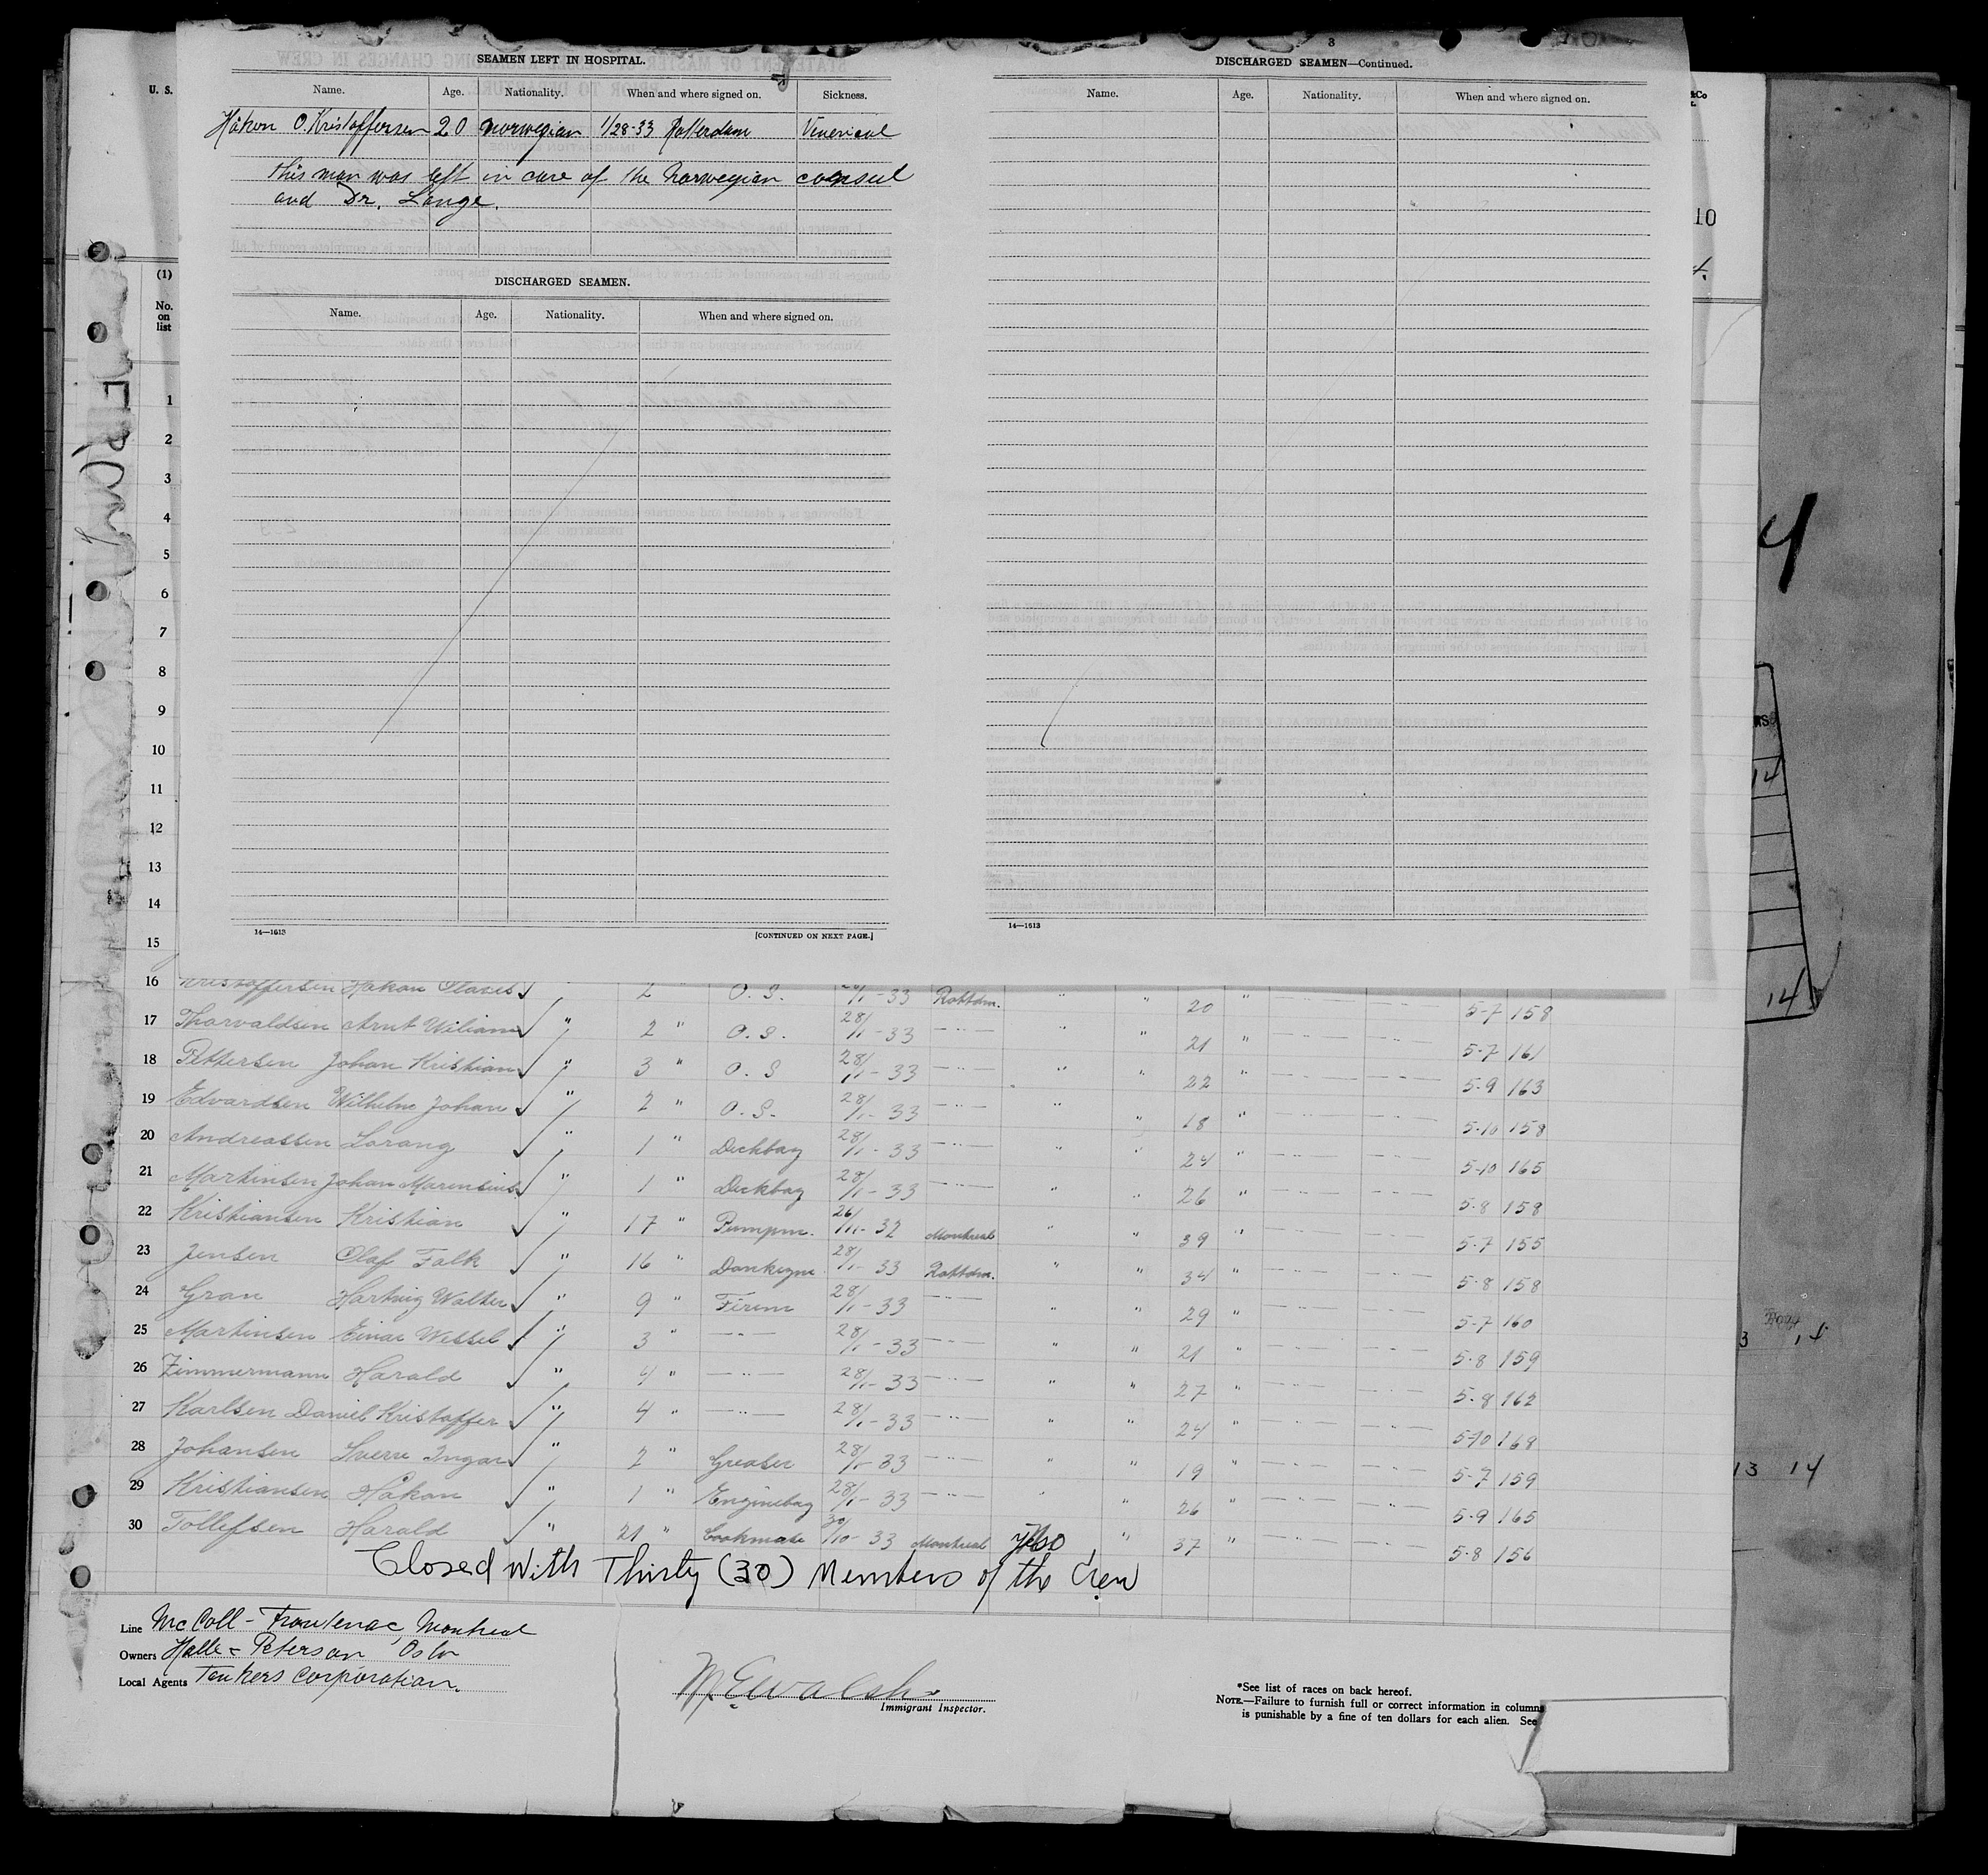 3
SEAMEN LEFT IN HOSPITAL.
Name. Age. Nationality. When and where signed on. Sickness.
Håkon O. Kristoffersen 20 norwegian 1/28-33 Rotterdam Venerical
this man was left in care of the Norwegian consul
and Dr. Lange.
DISCHARGED SEAMEN.
Name. Age. Nationality. When and where signed on.
14—1613 [CONTINUED ON NEXT PAGE.]
DISCHARGED SEAMEN—Continued.
Name. Age. Nationality. When and where signed on.
14—1613
U. S.
(1)
No.
on
list
1
2
3
4
5
6
7
8
9
10
11
12
13
14
15
16 Kristoffersen Håkon Olaves " 2 " O. S. 28/1-33 Rottdm. " " 20 " 5-7 158
17 Thorvaldsen Arnt Wiliam " 2 " O. S. 28/1-33 —"— " " 21 " 5-7 161
18 Pettersen Johan Kristian " 3 " O. S 28/1-33 —"— " " 22 " 5-9 163
19 Edvardsen Wilhelm Johan " 2 " O. S. 28/1-33 —"— " " 18 " 5-10 158
20 Andreassen Lorang " 1 " Deckboy 28/1-33 —"— " " 24 " 5-10 165
21 Martinsen Johan Marensius " 1 " Deckboy 28/1-33 —"— " " 26 " 5-8 158
22 Kristiansen Kristian " 17 " Pumpm. 26/11-32 Montreal " " 39 " 5-7 155
23 Jensen Olaf Falk " 16 " Donkeym 28/1-33 Rottdm. " " 34 " 5-8 158
24 Gran Hartvig Walter " 9 " Firem 28/1-33 —"— " " 29 " 5-7 160
25 Martinsen Einar Wessel " 3 " —"— 28/1-33 —"— " " 21 " 5-8 159
26 Zimmermann Harald " 4 " —"— 28/1-33 —"— " " 27 " 5-8 162
27 Karlsen Daniel Kristoffer " 4 " —"— 28/1-33 —"— " " 24 " 5-10 168
28 Johansen Sverre Ingar " 2 " Greaser 28/1-33 —"— " " 19 " 5-7 159
29 Kristiansen Håkon " 1 " Engineboy 28/1-33 —"— " " 26 " 5-9 165
30 Tollefsen Harald " 21 " Cookmate 30/10-33 Montreal " 37 " 5-8 156
Closed with Thirty (30) Members of the Crew
Line McColl-Frontenac, Montreal
Owners Halle & Peterson Oslo
Local Agents Tankers Corporation.
M E Walsh
Immigrant Inspector.
*See list of races on back hereof.
NOTE.—Failure to furnish full or correct information in columns
is punishable by a fine of ten dollars for each alien. See
10
4
14
14
3 14
13 14